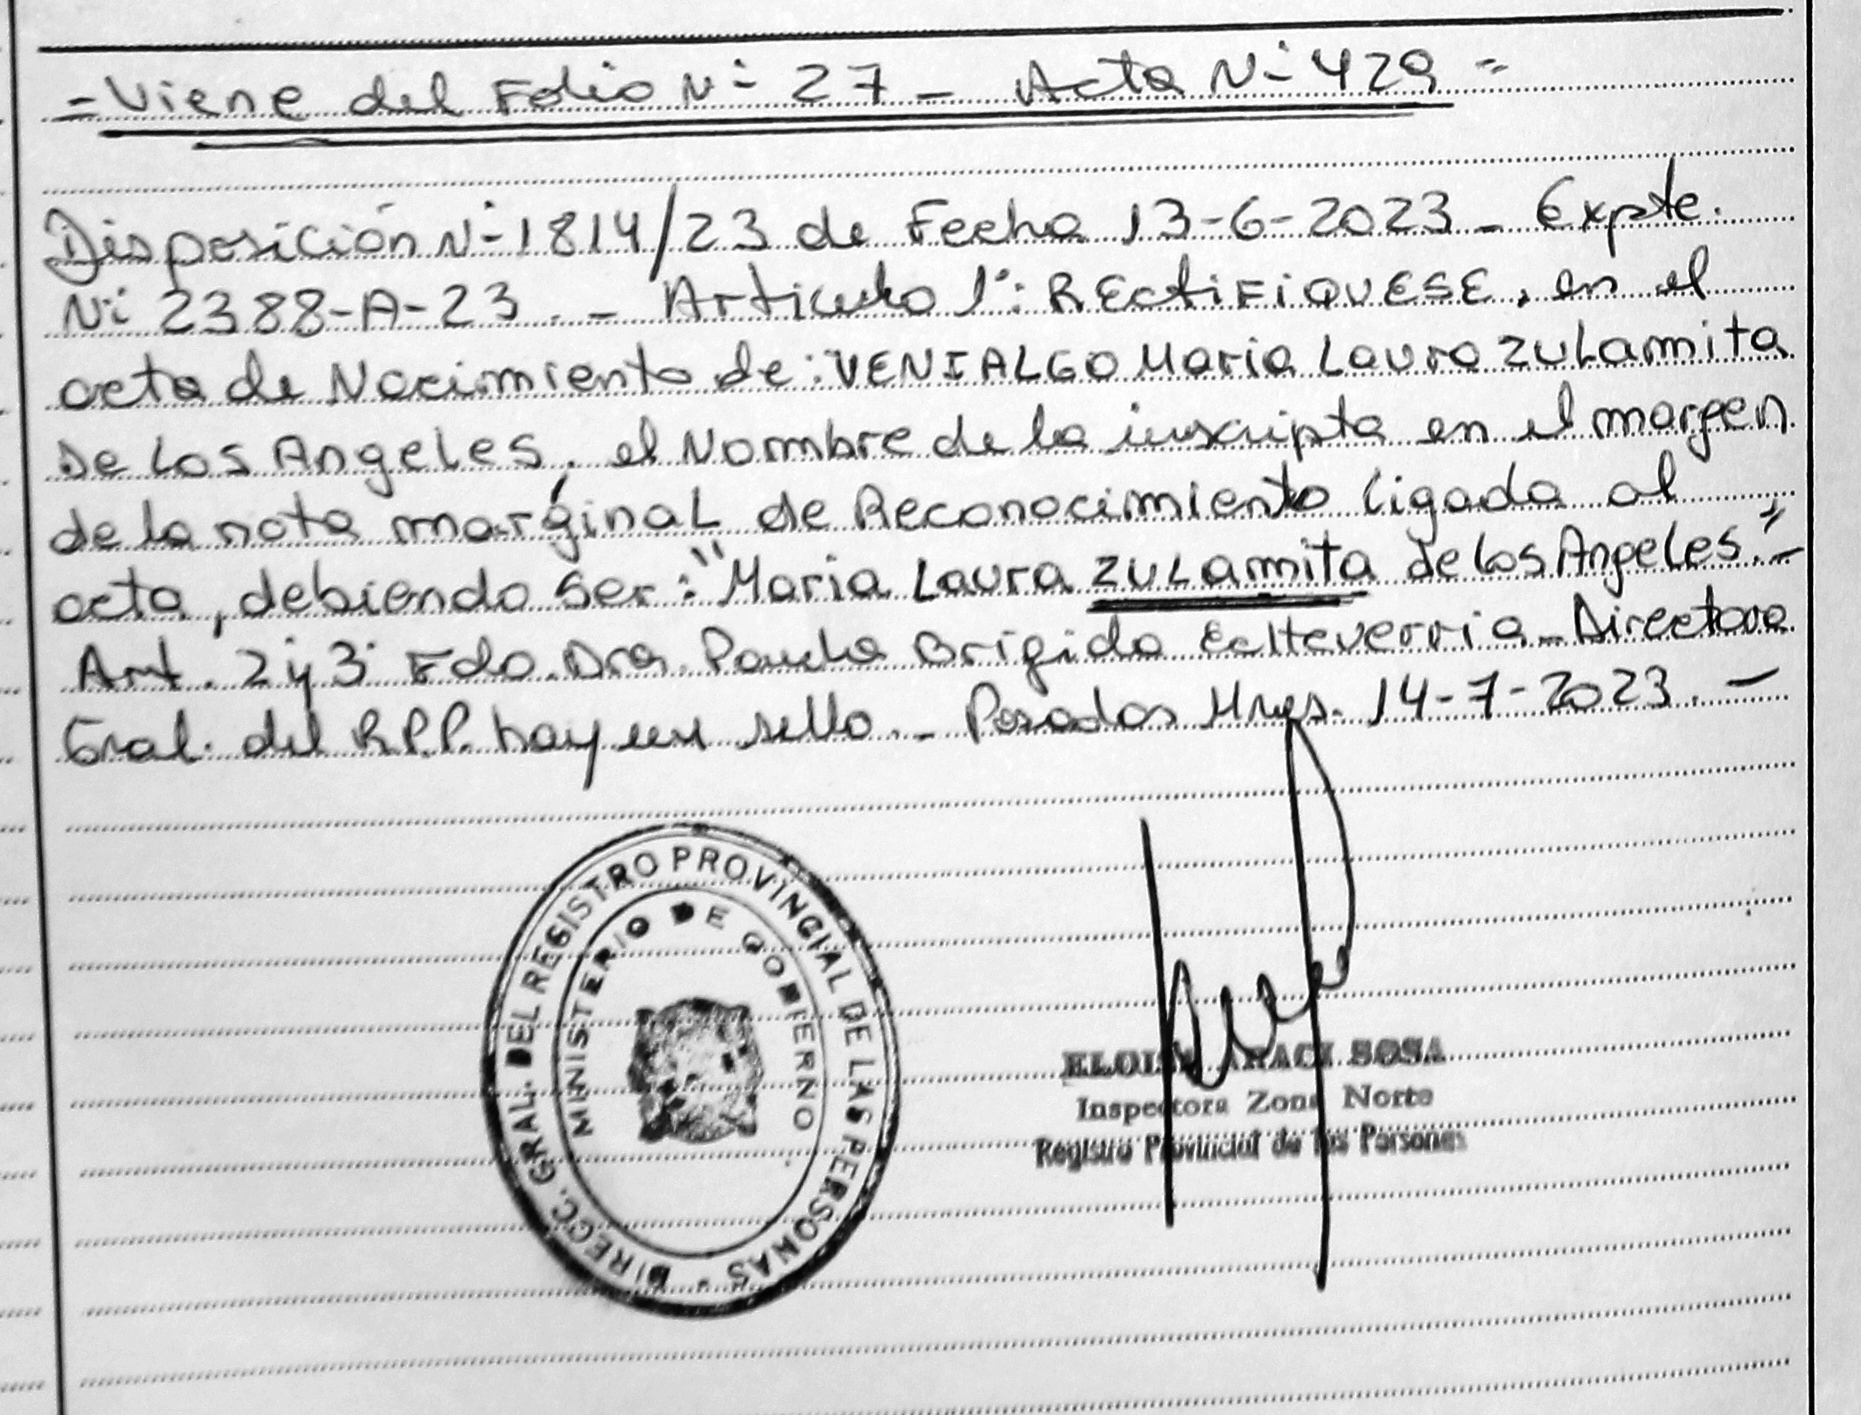 = Viene del Folio N° 27 - Acta N° 429 =
Disposición N° 1814/23 de Fecha 13-6-2023 - Expte.
N° 2388-A-23. - Articulo 1°: RECtiFiQUESE, en el
acta de Nacimiento de: VENIALGO Maria Laura ZULamita
De Los Angeles, el Nombre de la inscripta en el margen
de la nota marginal de Reconocimiento ligada al
acta, debiendo ser: "Maria Laura ZULamita de los Angeles." -
Art. 2 y 3° Fdo. Dra. Paula Brigida Echeverria - Directora
Gral. del R.P.P. hay un sello. - Posadas Mnes. 14-7-2023. -
DIRECC. GRAL. DEL REGISTRO PROVINCIAL DE LAS PERSONAS
MINISTERIO DE GOBIERNO
SOSA
Inspectora Zona Norte
Registro Provincial de las Personas